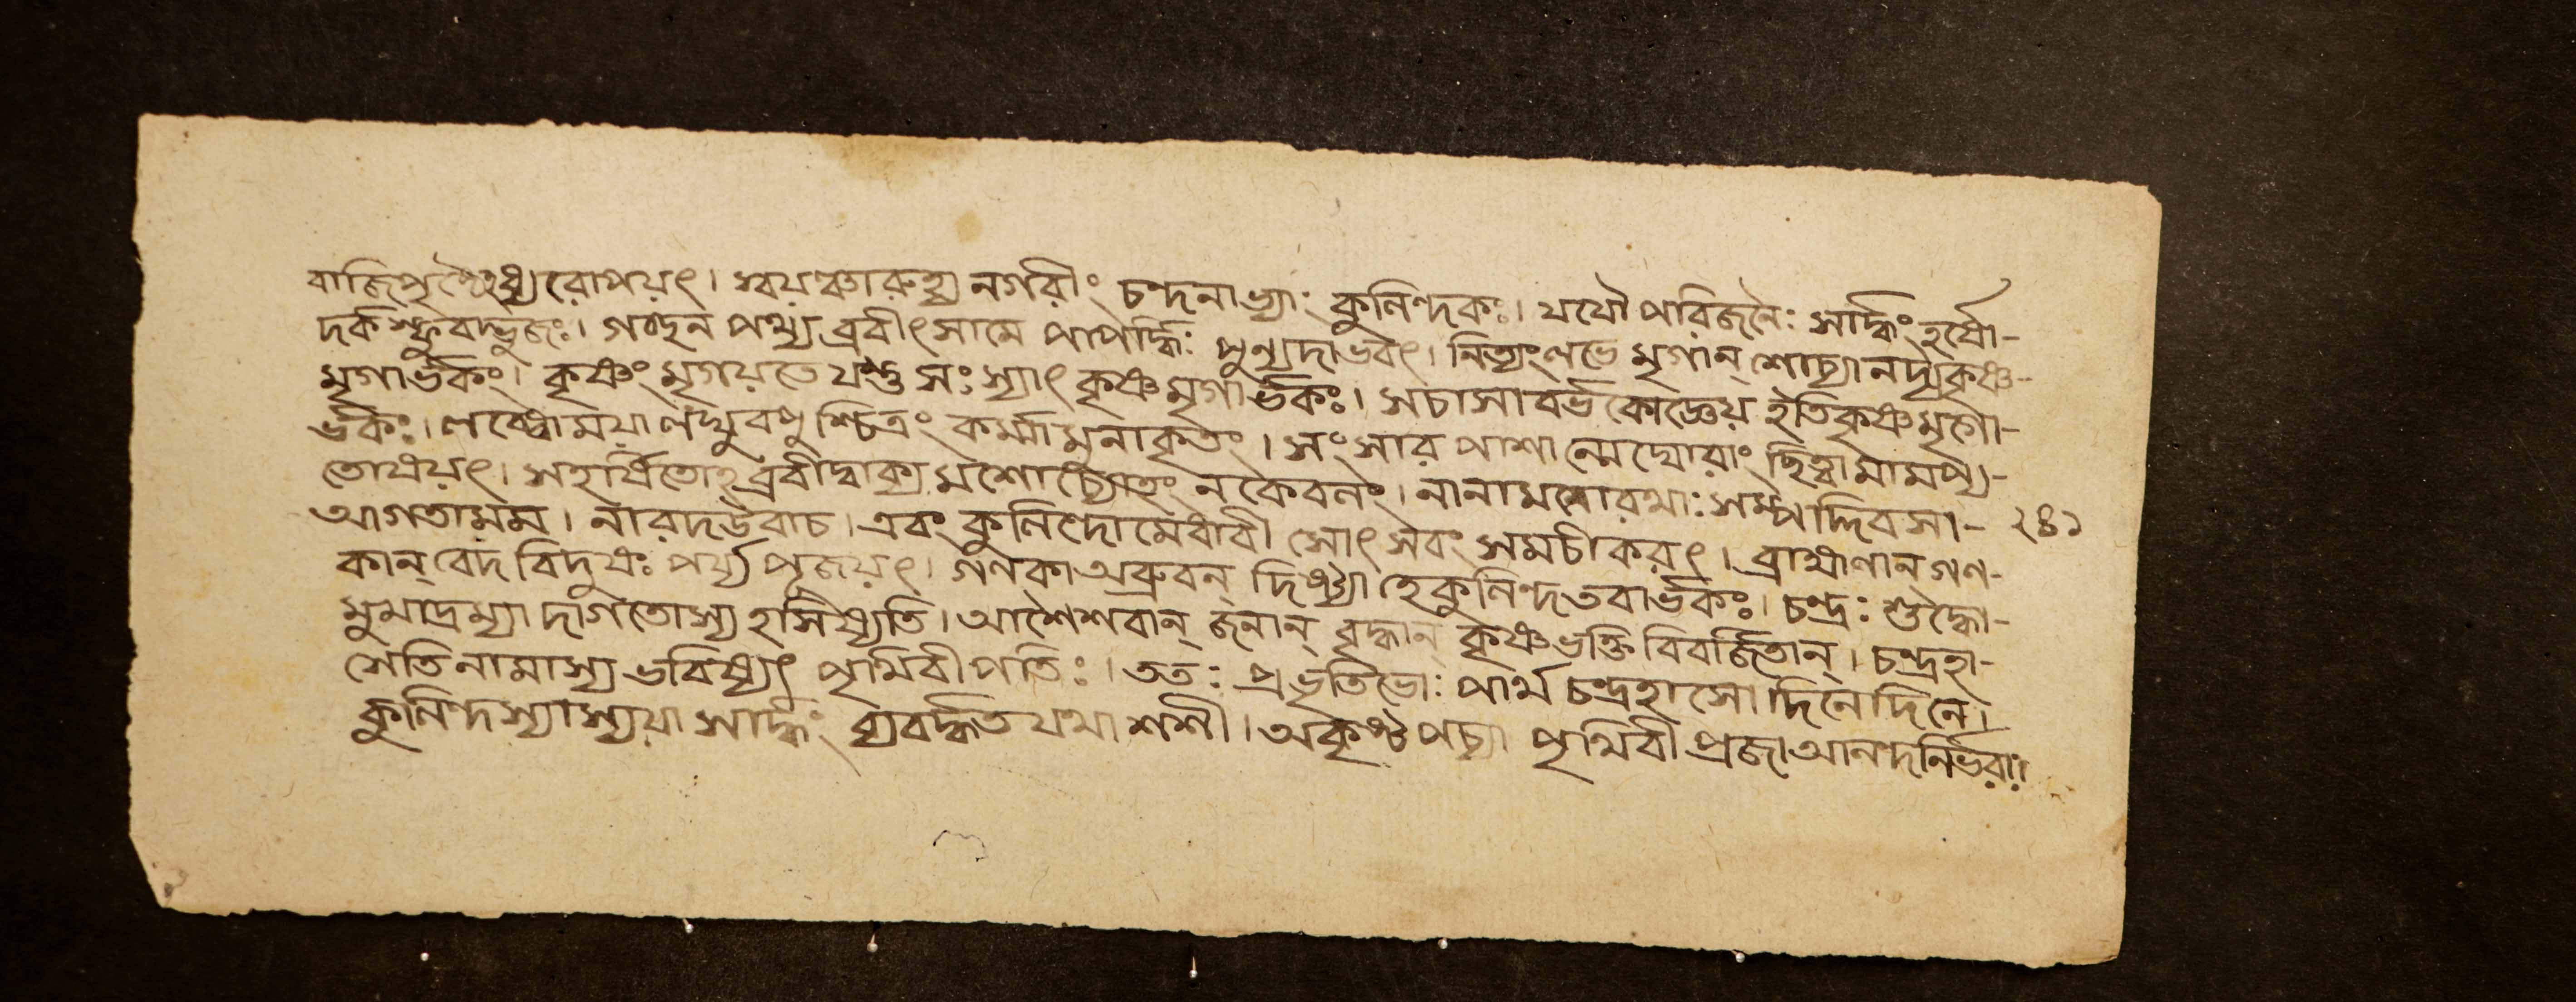 বাজিপৃষ্ঠেঽধ্যরোপয়ৎ। স্বয়ঞ্চারুহ্য নগরীং চন্দনাভ্যাঃ কুলিন্দকঃ। যযৌ পরিজনৈঃ সার্দ্ধং হর্ষো-
দর্কস্ফুরদ্ভুজঃ। গচ্ছন পথ্যব্রবীৎ সামে পাপর্দ্ধিঃ পুন্যদাভবৎ। নিত্যংলভে মৃগান্ শোচ্যানদ্যকৃষ্ণ-
মৃগার্ভকং। কৃষ্ণং মৃগয়তে যস্তু সঃ স্যাৎ কৃষ্ণমৃগার্ভকঃ। সচাসাবর্ভকোজ্ঞেয় ইতিকৃষ্ণমৃগা-
র্ভকঃ। লব্ধোময়া লঘুবপুশ্চিত্রং কর্ম্মামুনাকৃতং। সংসার পাশান্মেঘোরাং ছিত্ত্বামামপ্য-
তোষয়ৎ। সহর্ষিতোঽব্রবীদ্বাক্য মশোচ্যোহং নকেবলং। নানামনোরথাঃ সম্পদ্দিবসা- ২৪১
আগতামম। নারদউবাচ। এবং কুলিন্দোমেধাবী সোৎসবং সমচীকরৎ। ব্রাহ্মণান্ গণ-
কান্ বেদ বিদুষঃ পর্য্যপূজয়ৎ। গণকাঅব্রুবন্ দিষ্ট্যা হেকুলিন্দতবার্ভকঃ। চন্দ্রঃ শুদ্ধো-
মুমাদ্রম্যা দাগতোস্য হসিষ্যতি। আশৈশবান্ জনান্ বৃদ্ধান্ কৃষ্ণভক্তি বিবর্জিতান্। চন্দ্রহা-
সেতি নামাস্য ভবিষ্যৎ পৃথিবীপতিঃ। ততঃ প্রভৃতিভোঃ পার্থ চন্দ্রহাসো দিনেদিনে।
কুলিন্দস্যাস্যয়া সার্দ্ধং ব্যবর্দ্ধত যথা শশী। অকৃষ্টপচ্যা পৃথিবী প্রজাআনন্দনির্ভরাঃ।